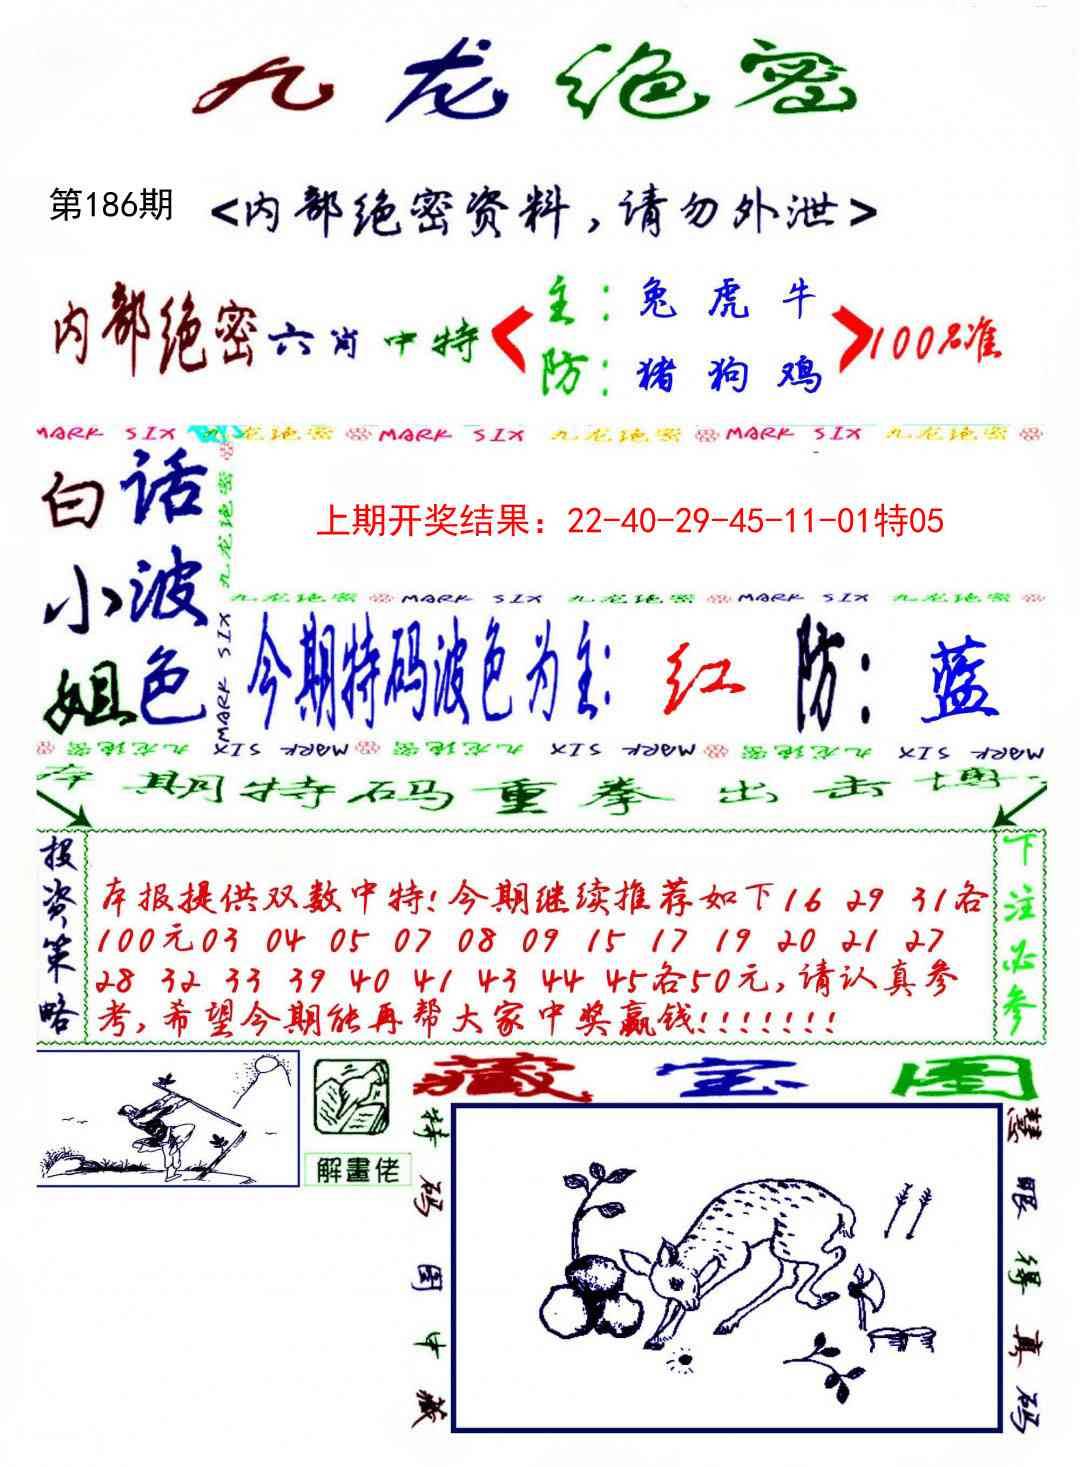 九龙绝密
第186期 <内部绝密资料,请勿外泄>
内部绝密六肖中特
主: 兔 虎 牛
防: 猪 狗 鸡
100%准
MARK SIX 九龙绝密 MARK SIX 九龙绝密 MARK SIX 九龙绝密
白话
小波
姐色
九龙绝密
MARK SIX
上期开奖结果：22-40-29-45-11-01特05
九龙绝密 MARK SIX 九龙绝密 MARK SIX 九龙绝密
今期特码波色为主: 红 防: 蓝
九龙绝密 MARK SIX 九龙绝密 MARK SIX 九龙绝密 MARK SIX
本期特码重拳出击博
投资策略
本报提供双数中特!今期继续推荐如下16 29 31各
100元03 04 05 07 08 09 15 17 19 20 21 27
28 32 33 39 40 41 43 44 45各50元,请认真参
考,希望今期能再帮大家中奖赢钱!!!!!!!
下注必参
解畫佬
藏宝图
特码图中藏
慧眼得真码